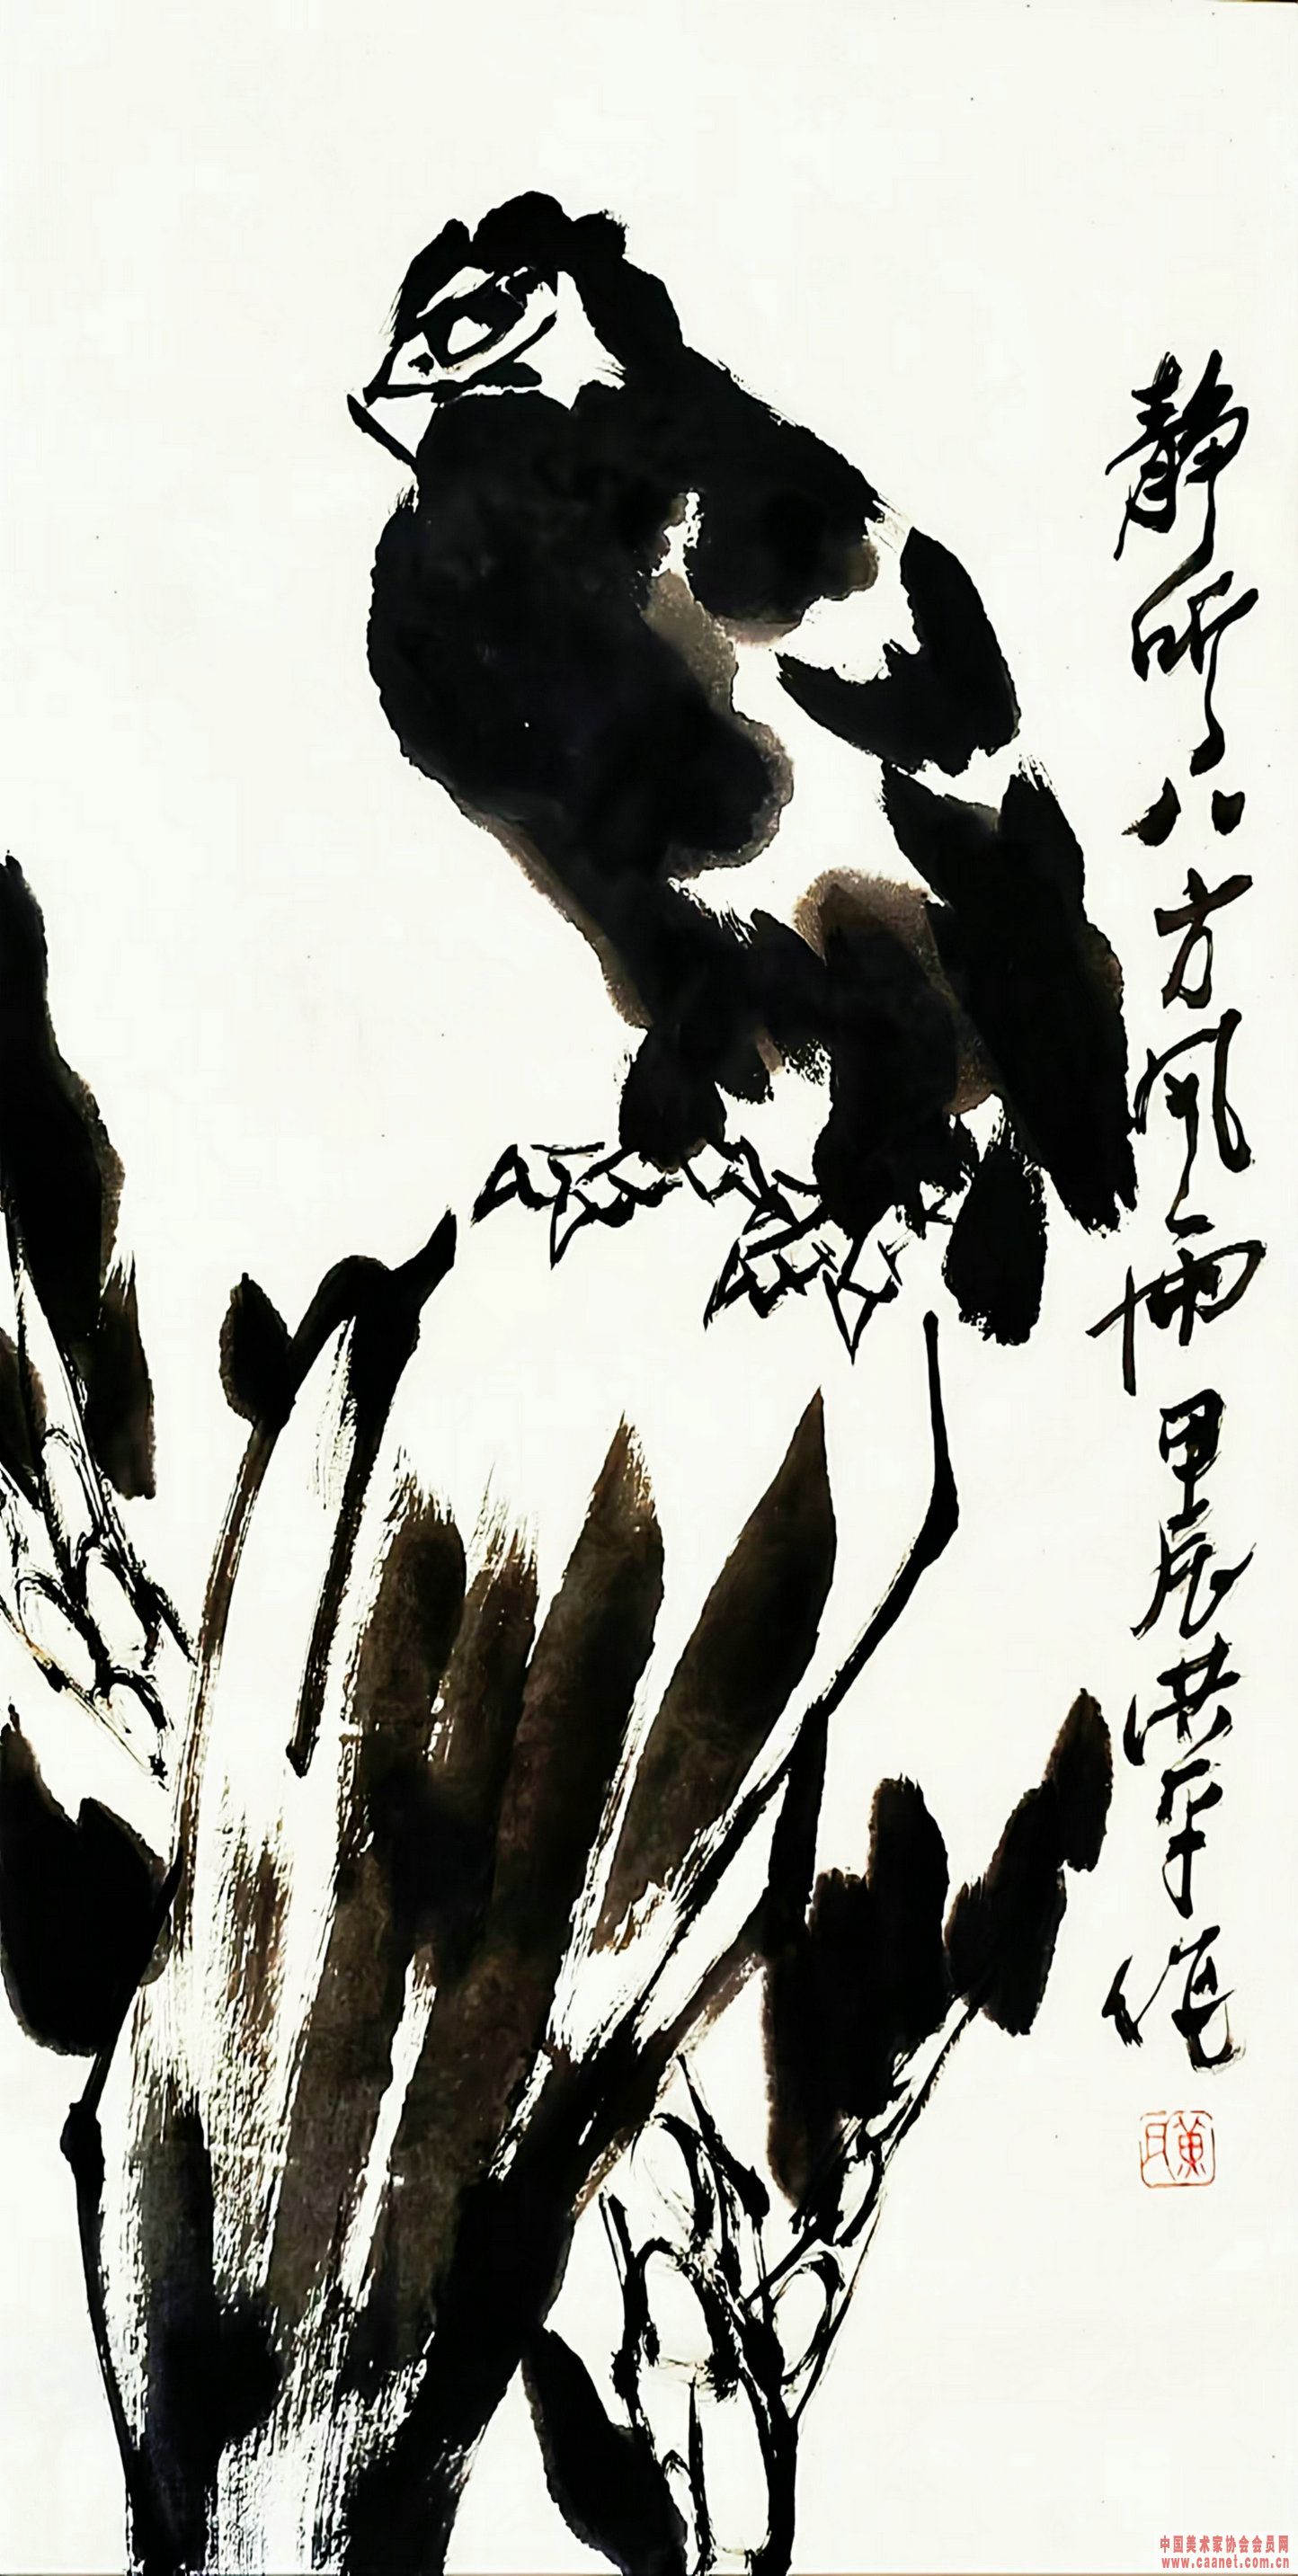 静听八方风雨甲辰洪平作
中国美术家协会会员网
www.caanet.com.cn